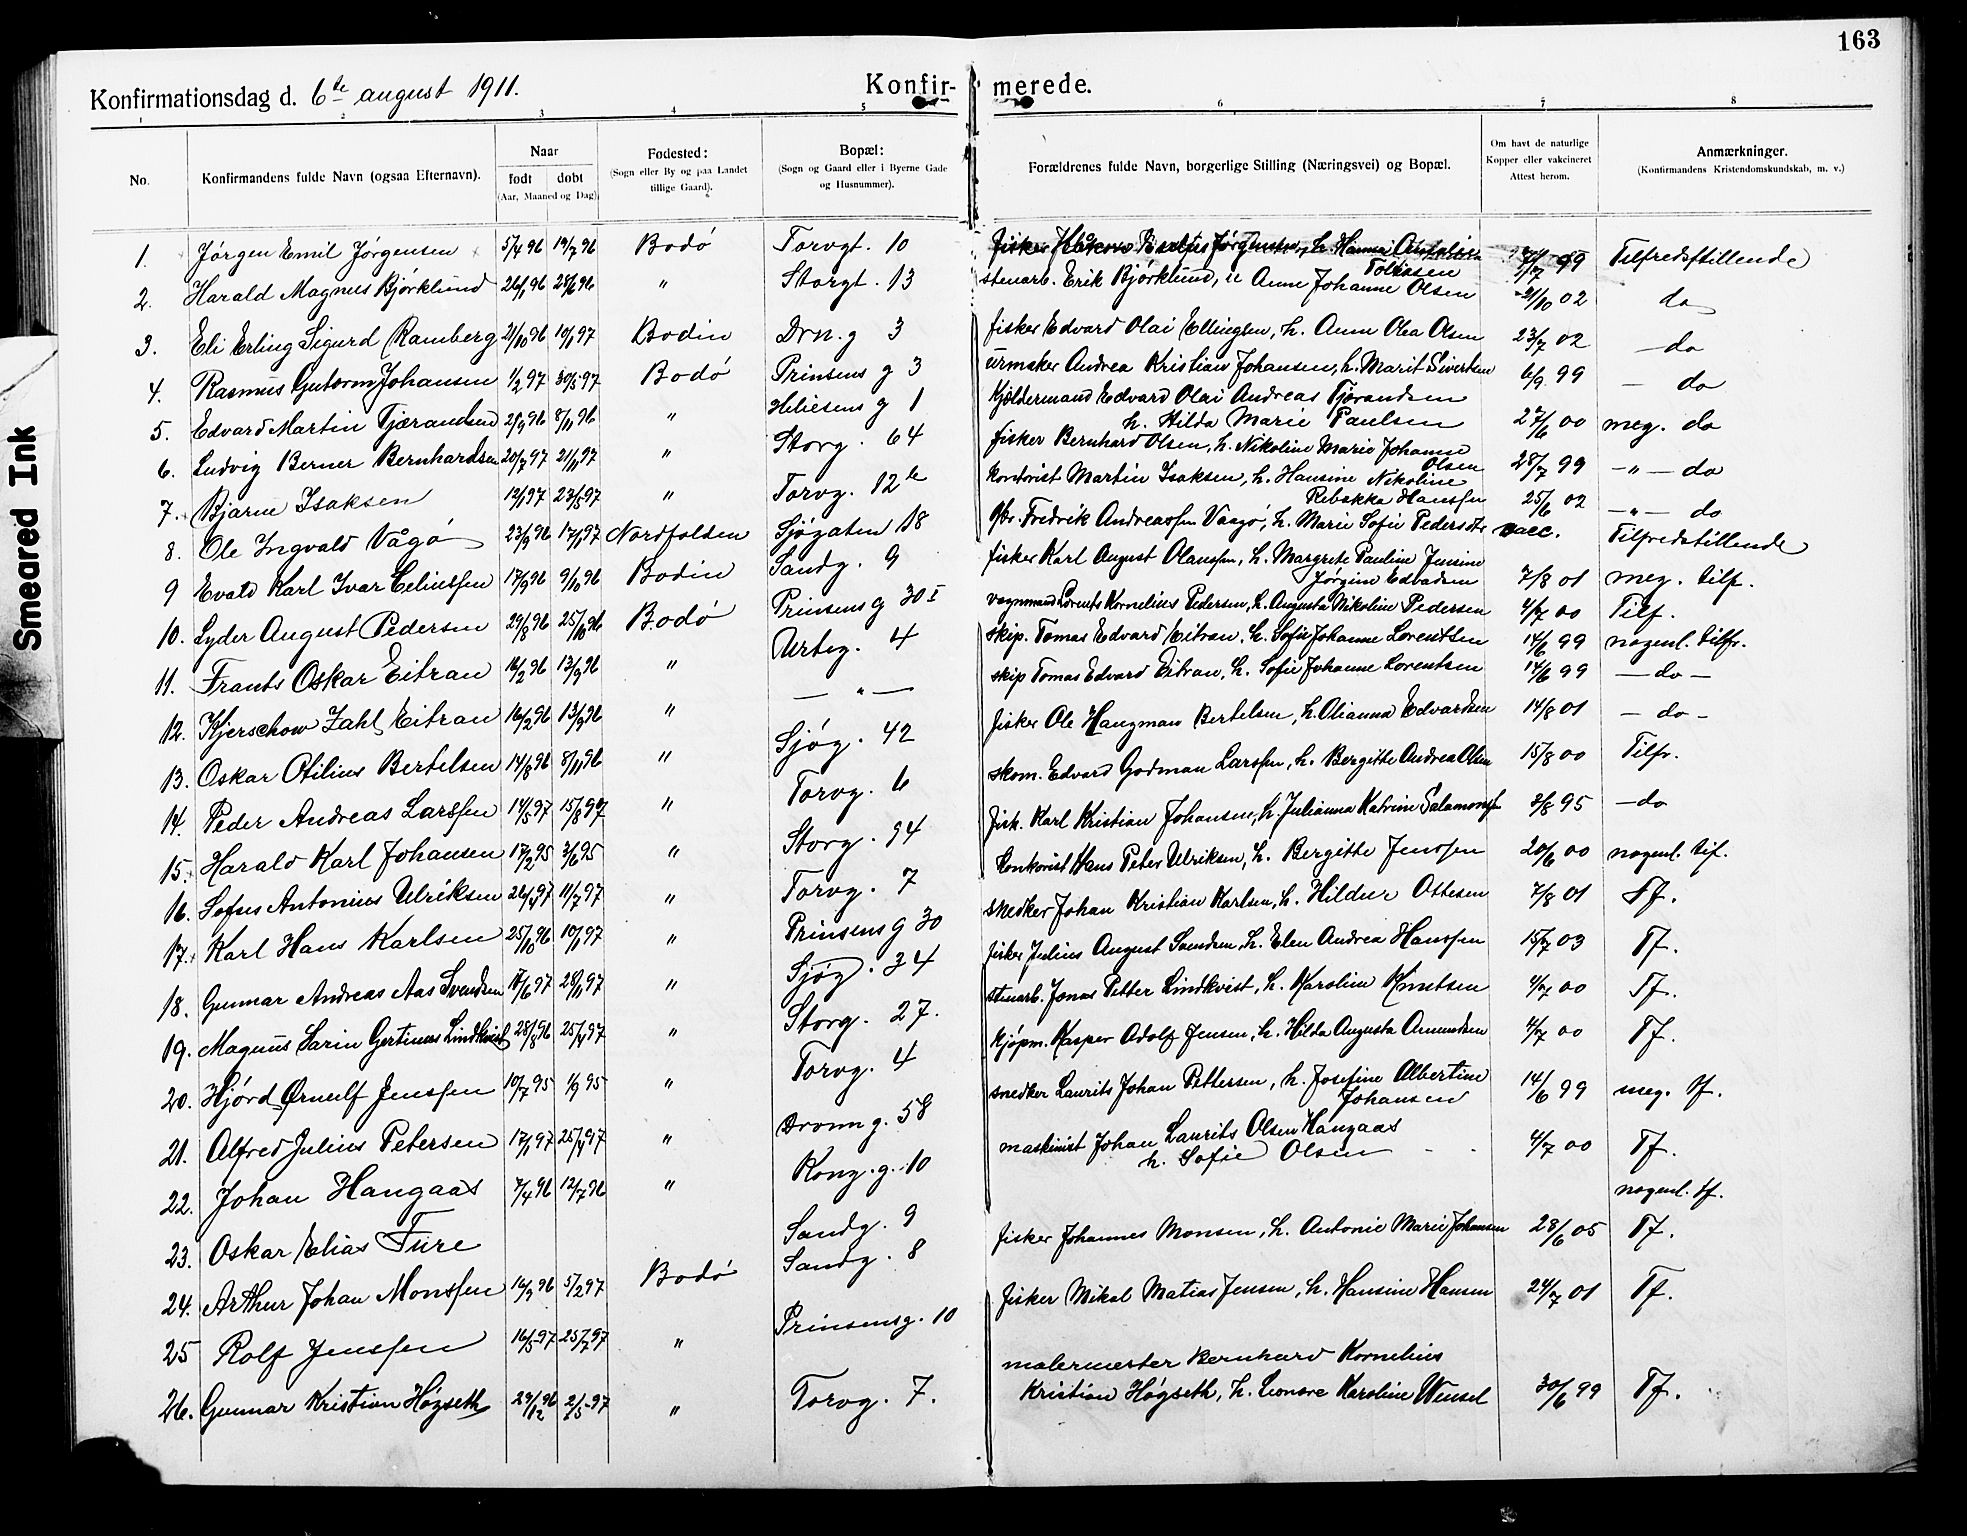 163
Smeared Ink
Konfirmationsdag d. 6te august 1911.
Konfir- merede.
1 2 3 4 5 6 7 8
No. Konfirmandens fulde Navn (ogsaa Efternavn). Naar født døbt (Aar, Maaned og Dag). Fødested: (Sogn eller By og paa Landet tillige Gaard). Bopæl: (Sogn og Gaard eller i Byerne Gade og Husnummer). Forældrenes fulde Navn, borgerlige Stilling (Næringsvei) og Bopæl. Om havt de naturlige Kopper eller vakcineret Attest herom. Anmærkninger. (Konfirmandens Kristendomskundskab, m. v.)
1. Jørgen Emil Jørgensen 5/4 96 19/7 96 Bodø Torvgt. 10 fisker Jørgensen, h. Hanna 99 Tilfredsstillende
2. Harald Magnus Bjørklund 26/1 96 28/6 96 " Storgt. 13 stenarb. Erik Bjørklund, Anne Johanne Olsen 21/10 02 do
3. Eli Erling Sigurd Ramberg 21/10 96 10/1 97 Bodin Drn.g 3 fisker Edvard Olai Ellingsen, h. Anne Olea Olsen 23/7 02 - do
4. Rasmus Gutorm Johansen 1/2 97 30/5 97 Bodø Prinsens g 3 urmaker Andrea Kristian Johansen, h. Marit Sivertsen 6/9 99 - do
5. Edvard Martin Tjærandsen 8/11 96 " g 1 Kjeldermand Edvard Olai Andreas Tjærandsen
h. Hilda Marie Paulsen 27/6 00 meg. do
6. Ludvig Berner Bernhardsen 20/7 97 21/11 97 " Storg. 64 fisker Bernhard Olsen, h. Nikoline Marie Johanne
Olsen 28/7 99 - " - do
7. Bjarne Isaksen 12/1 97 23/5 97 " Torvg. 12b kontorist Martin Isaksen, h. Hansine Nikoline
Rebekka Hanssen 25/6 02 - " - do
8. Ole Ingvald Vågø 23/9 96 17/1 97 Nordfolden Sjøgaten 18 Gbr. Fredrik Andreassen Vaagø, h. Marie Sofie Pedersdtr vacc. Tilfredstillende
9 Evald Karl Ivar Celiussen 17/9 96 9/10 96 Bodin Sandg. 9 fisker Karl August Olaussen, h. Margrete Pauline Jensine
Jørgine Edvadsen 7/8 01 meg. tilf.
10. Lyder August Pedersen 29/8 96 25/10 96 Bodø Prinsens g 30 I vognmand Lorents Kornelius Pedersen, h. Augusta Nikoline Pedersen 4/7 00 Tilf.
11. Frants Oskar Eitran 16/2 96 13/9 96 " Urteg. 4 skip. Tomas Edvard Eitran, h. Sofie Johanne Lorentsen 14/6 99 nogenl. tilfr.
12. Kjerschow Zahl Eitran 16/2 96 13/9 96 " - " - skip Tomas Edvard Eitran, h. Sofie Johanne Lorentsen 14/6 99 - do -
13. Oskar Otilius Bertelsen 14/8 96 8/11 96 " Sjøg. 42 fisker Ole Hangman Bertelsen, h. Olianna Edvardsen 14/8 01 - do -
14. Peder Andreas Larssen 14/5 97 15/8 97 " Torvg. 6 skom. Edvard Godman Larssen, h. Bergitte Andrea Olsen 15/8 00 Tilfr.
15. Harald Karl Johansen 17/2 95 3/6 95 " Storg. 94 fisk. Karl Kristian Johansen, h. Julianna Katrine Salamons 3/8 95 - do
16. Sofus Antonius Ulriksen 26/4 97 11/7 97 " Torvg. 7 kontorist Hans Peter Ulriksen, h. Bergitte Jenssen 20/6 00 nogenl. tif.
17. Karl Hans Karlsen 25/10 96 10/1 97 " Prinsens g 30 snedker Johan Kristian Karlsen, h. Hildur Ottesen 7/8 01 Tf.
18. Gunnar Andreas Aas Svendsen 17/6 97 28/11 97 " Sjøg. 34 fisker Julius August Svendsen, h. Elen Andrea Hanssen 15/7 03 Tf.
19. Magnus Sarin Gertinus Lindkvist 28/8 96 25/4 97 " Storg. 27. stenarb. Jonas Petter Lindkvist, h. Karoline Knutsen 4/7 00 Tf.
20. Hjørd Ørnulf Jenssen 10/7 95 1/9 95 " Torvg. 4 kjøpm. Kasper Adolf Jensen, h. Hilda Augusta Amundsen 4/7 00 Tf.
21. Alfred Julius Petersen 17/1 97 25/4 97 " Dronn g. 58 snedker Laurits Johan Pettersen, h. Josefine Albertine
Johansen 14/6 99 meg. tf.
22. Johan Hangaas 7/4 96 12/7 96 " Kong.g. 10 maskinist Johan Laurits Olsen Hangaas
h. Sofie Olsen 4/7 00 Tf.
23. Oskar Elias Fure Sandg. 9 nogenl. tf.
24. Arthur Johan Monssen 16/9 96 5/2 97 Bodø Sandg. 8 fisker Johannes Monsen, h. Antonie Marie Johansen 28/6 05 Tf.
25 Rolf Jenssen 16/5 97 25/7 97 " Prinsensg. 10 fisker Mikal Matias Jensen, h. Hansine Hansen 24/7 01 Tf.
26. Gunnar Kristian Høgseth 29/12 96 2/5 97 " Torvg. 7. malermester Bernhard Kornelius
Kristian Høgseth, h. Leonore Karoline Wensel 30/6 99 Tf.